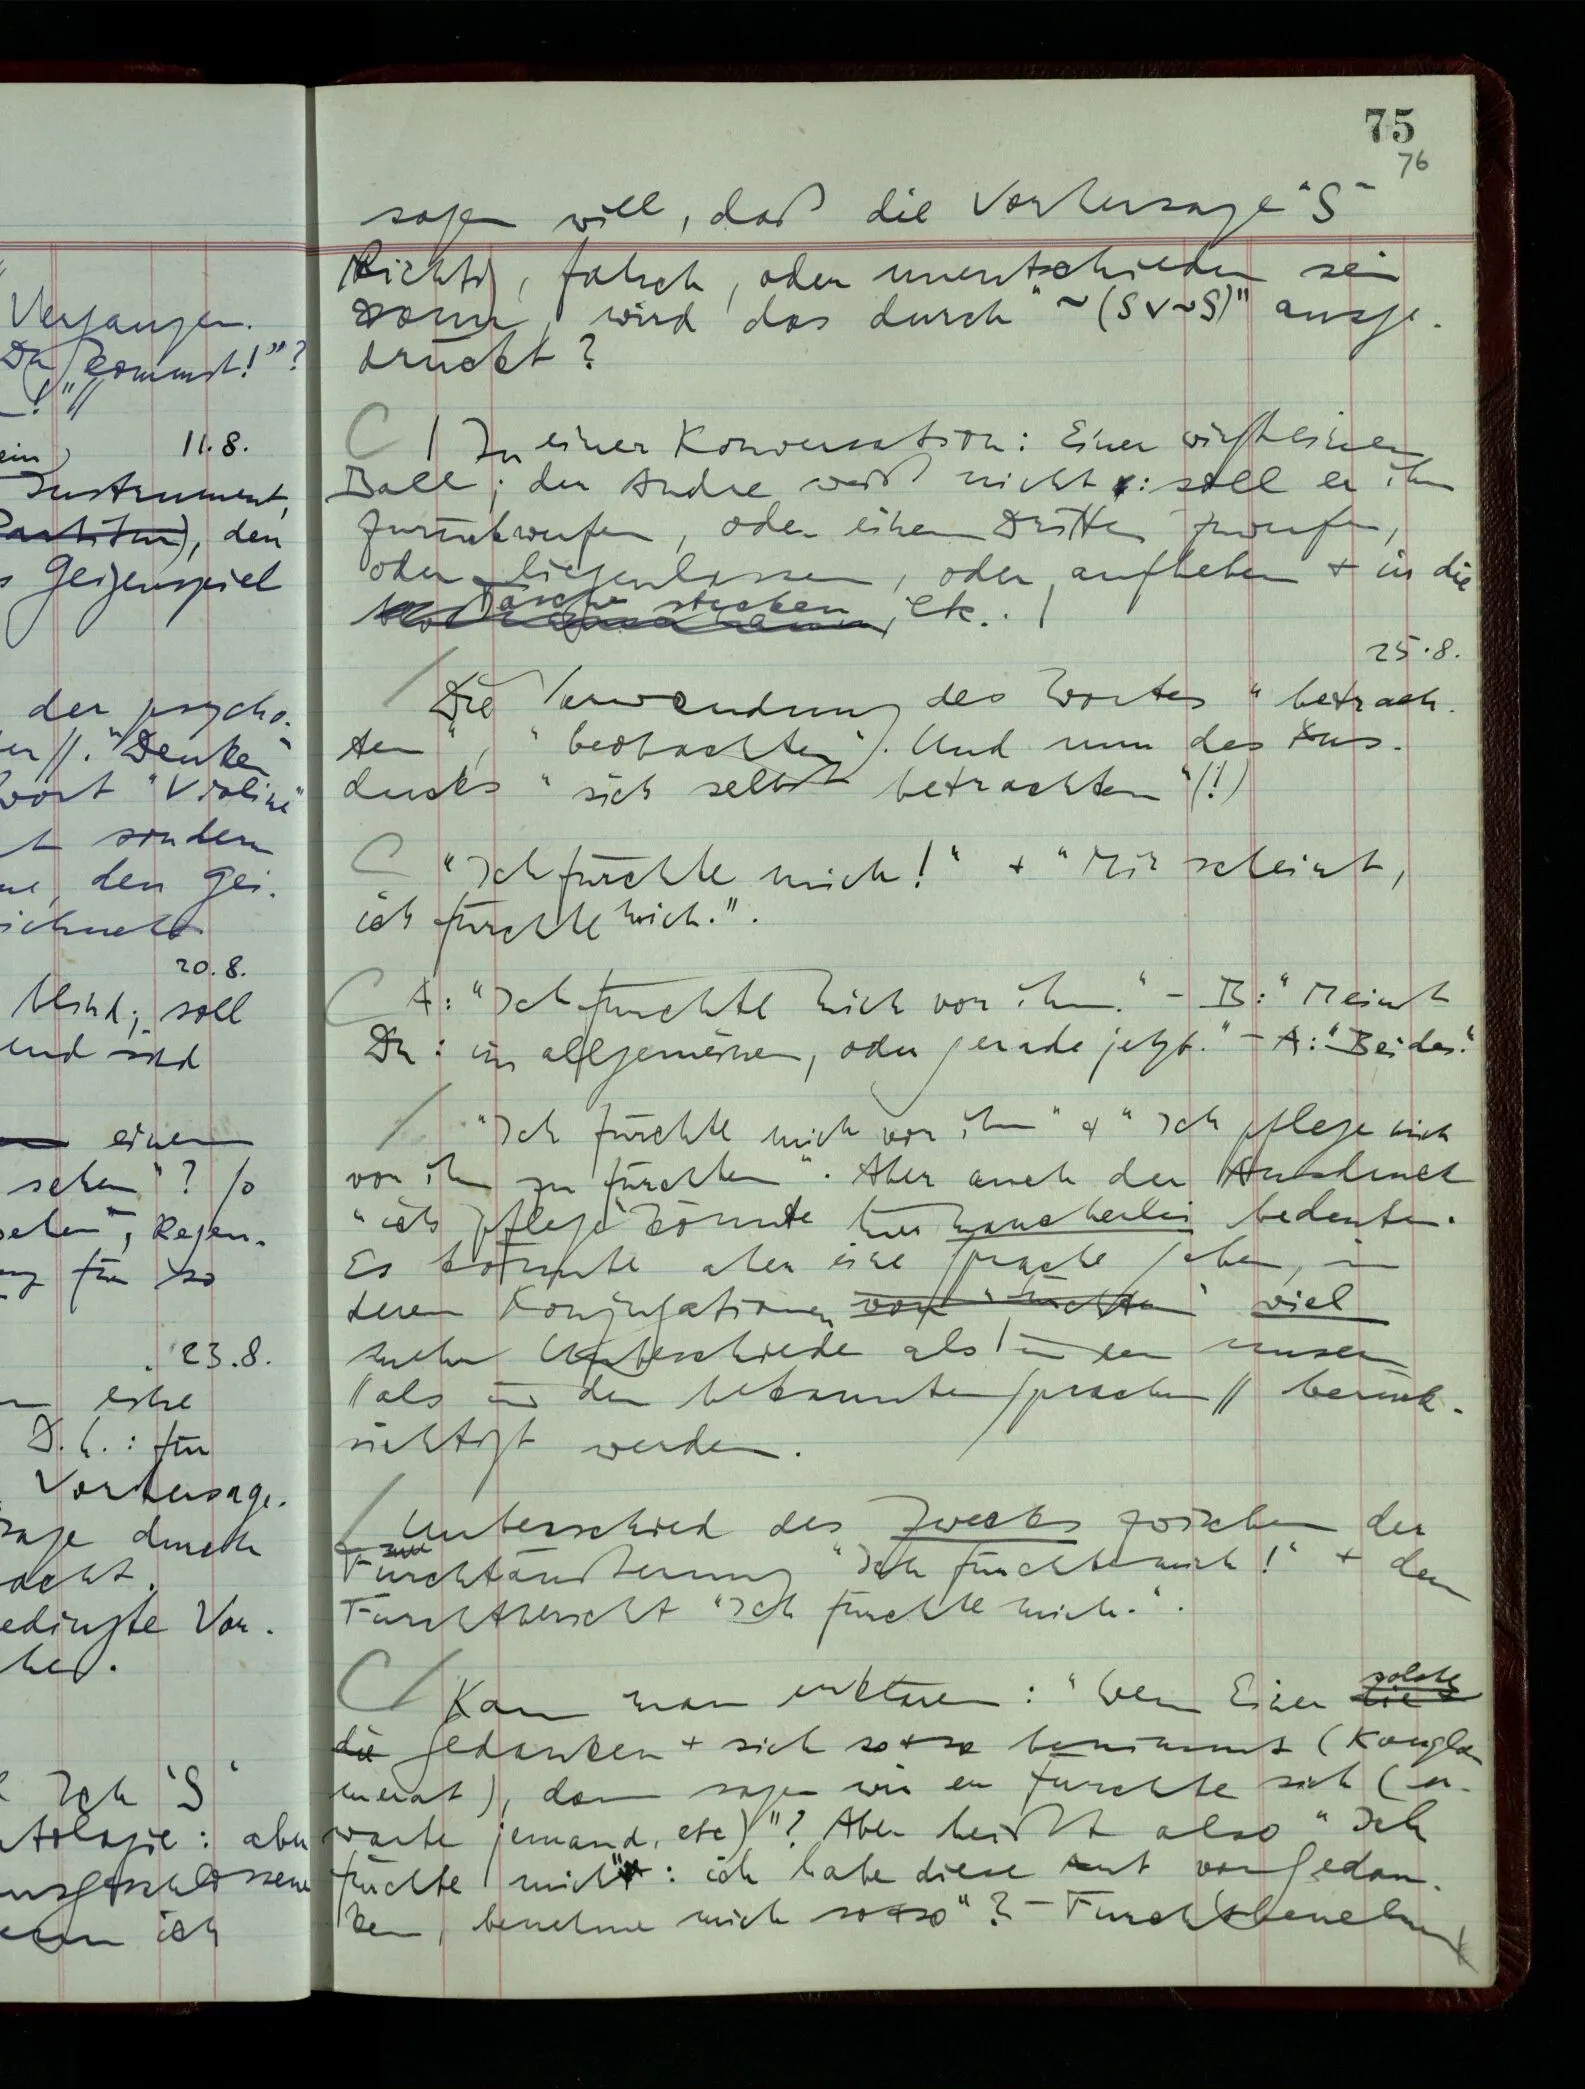 Vergangen.
Du kommst!"?
!"//
11.8.
ein,
Instrument,
Partitur), den
s Geigenspiel
der psycho-
er//. "Denken"
wort "Violine"
t sondern
den Gei-
zeichnet
20.8.
blind; soll
und sind
einen
sehen"? so
sehen", Regen-
für so
23.8.
eine
D.h.: für
Vorhersage.
sage durch
acht.
edingte Vor-
her.
Ich 'S'
tologie: aber
ausgeschlossene
wenn ich
75
76
sagen will, daß die Vorhersage "S"
Richtig, falsch, oder unentschieden sein
kann, wird das durch "~(S∨~S)" ausge-
drückt?
| In einer Konversation: Einer wirft einen
Ball; der Andre weiß nicht: soll er ihn
zurückwerfen, oder einem Dritten zuwerfen,
oder liegenlassen, oder aufheben + in die
Tasche stecken, etc.. |
25.8.
Die Verwendung des Wortes "betrach-
ten", "beobachten". Und nun des Aus-
drucks "sich selbst betrachten"(!)
"Ich fürchte mich!" + "Mir scheint,
ich fürchte mich.".
A: "Ich fürchte mich vor ihm." – B: "Meinst
Du: im allgemeinen, oder gerade jetzt." – A: "Beides."
"Ich fürchte mich vor ihm" + "Ich pflege mich
vor ihm zu fürchten". Aber auch der Ausdruck
"ich pflege" könnte hier mancherlei bedeuten.
Es könnte aber eine Sprache geben, in
deren Konjugationen von 'fürchten' viel
mehr Unterschiede als in den unsern
//als in den bekannten Sprachen// berück-
sichtigt werden.
Unterschied des Zwecks zwischen der
Furchtäußerung "Ich fürchte mich!" + dem
Furchtbericht "Ich fürchte mich.".
Kann man erklären: "Wenn Einer die solche
die Gedanken + sich so+so benimmt (Konglo-
merat), dann sagen wir er fürchte sich (er-
warte jemand, etc)"? Aber heißt also "Ich
fürchte mich": ich habe diese Art von Gedan-
ken, benehme mich so+so"? – Furchtbenehmen